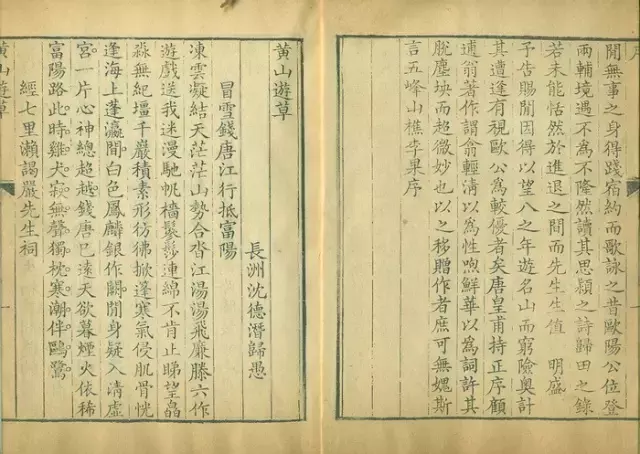 序
閒無事之身得踐宿約而歌詠之昔歐陽公位登
兩輔境遇不為不隆然讀其思潁之詩歸田之錄
若未能恬然於進退之間而先生生值　明盛
予告賜閒因得以望八之年遊名山而窮險奧計
其遭逢有視歐公為較優者矣唐皇甫持正序顧
逋翁著作謂翕輕清以為性喣鮮華以為詞許其
脫塵坱而超微妙也以之移贈作者庶可無媿斯
言五峰山樵李果序
黃山遊草
長洲沈德潛歸愚
冒雪錢唐江行抵富陽
凍雲凝結天茫茫山勢合沓江湯湯飛廉滕六作
遊戲送我迷漫馳帆檣鬖髿連綿不肯止睇望皛
淼無紀壇千巖積素形彷彿掀篷寒氣侵肌骨恍
逢海上蓬瀛閒白色鳳麟銀作闕閒身疑入清虛
宮一片心神總超越錢唐已遠天欲暮煙火依稀
富陽路此時雞犬寂無聲獨枕寒潮伴鷗鷺
經七里瀨謁嚴先生祠
黃山遊草